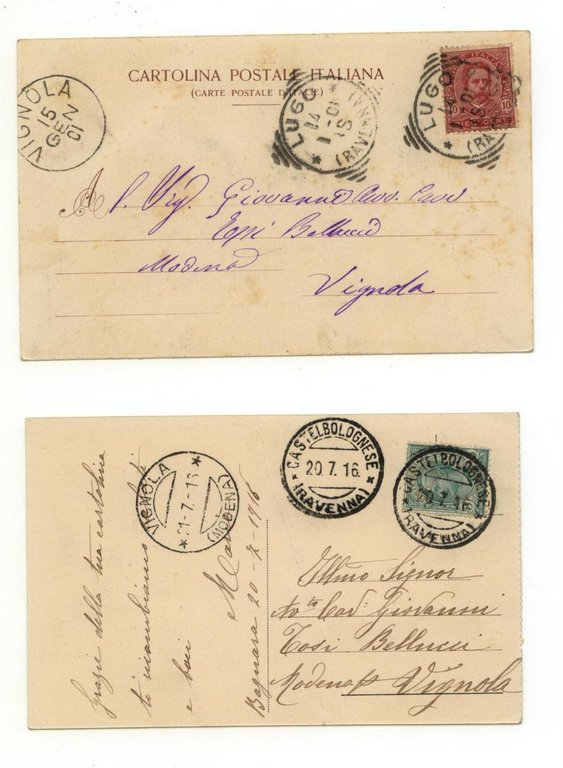 CARTOLINA POSTALE ITALIANA
(CARTE POSTALE D'ITALIE)
VIGNOLA
15
GEN
01
LUGO
14
1-01
(RAVENNA)
LUGO
14
1-01
(RAVENNA)
10
10
A l Sig. Giovanni Cav.
Tosi Bellucci
Modena
Vignola
VIGNOLA
21-7-16
(MODENA)
CASTELBOLOGNESE
20.7.16.
(RAVENNA)
CASTELBOLOGNESE
20.7.16
(RAVENNA)
Grazie della tua cartolina
ti ricambiamo
e baci
Bagnara 20-7-1916
Illmo Signor
No to Cav: Giovanni
Tosi Bellucci
Modena Vignola